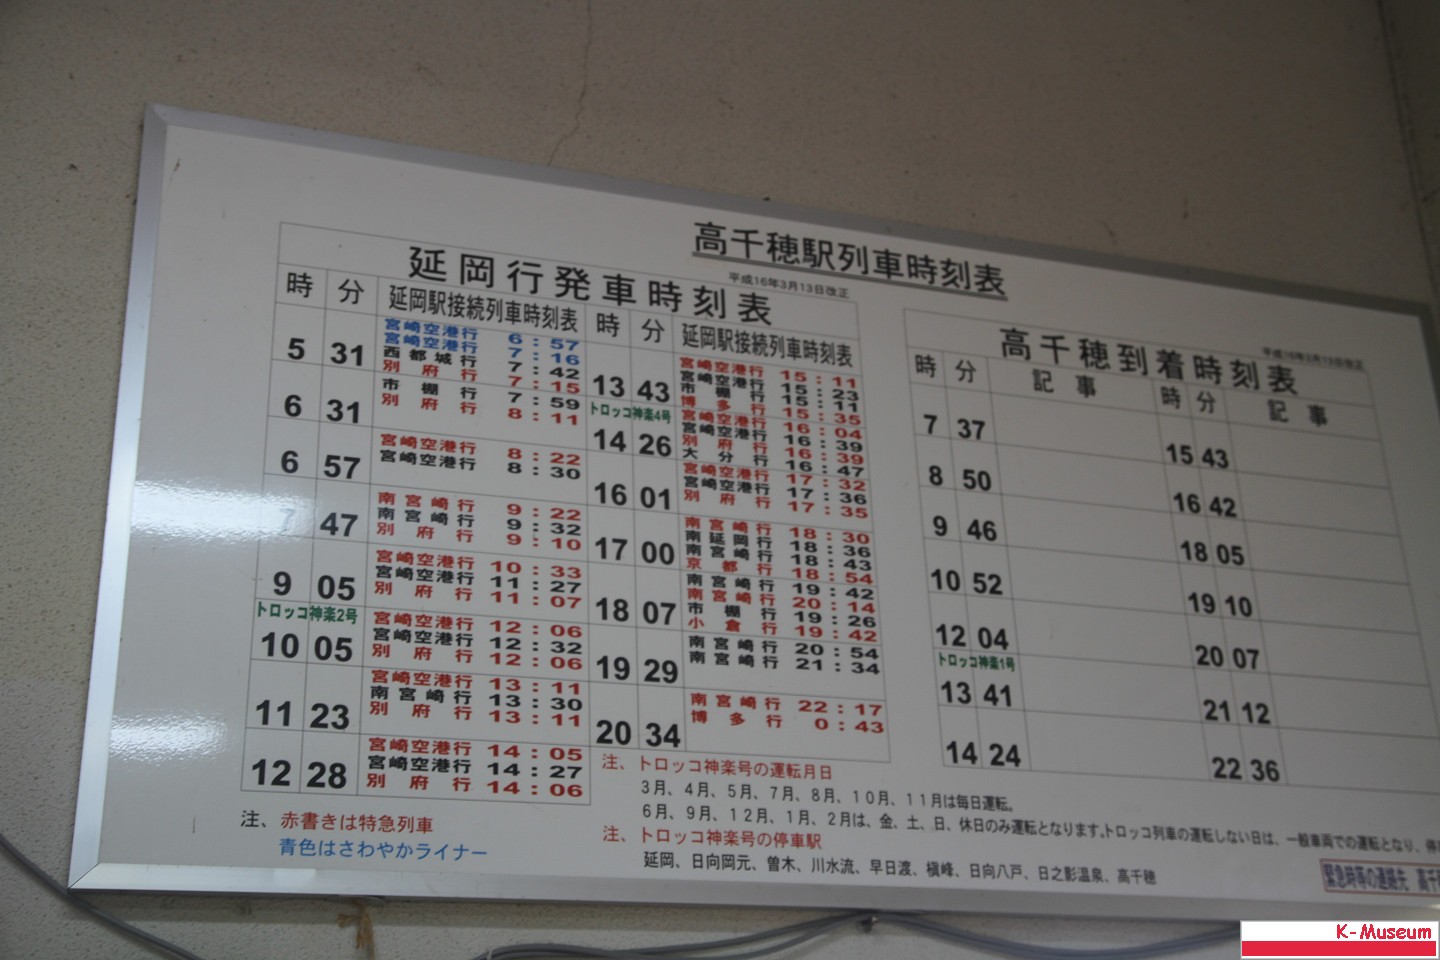 高千穂駅列車時刻表
平成16年3月13日改正
延岡行発車時刻表
時 分 延岡駅接続列車時刻表 時 分 延岡駅接続列車時刻表
5 31
宮崎空港行 6:57
宮崎空港行 7:16
西都城行 7:42
別府行 7:15
6 31
市棚行 7:59
別府行 8:11
6 57
宮崎空港行 8:22
宮崎空港行 8:30
7 47
南宮崎行 9:22
南宮崎行 9:32
別府行 9:10
9 05
宮崎空港行 10:33
宮崎空港行 11:27
別府行 11:07
トロッコ神楽2号
10 05
宮崎空港行 12:06
宮崎空港行 12:32
別府行 12:06
11 23
宮崎空港行 13:11
南宮崎行 13:30
別府行 13:11
12 28
宮崎空港行 14:05
宮崎空港行 14:27
別府行 14:06
13 43
宮崎空港行 15:11
宮崎空港行 15:23
市棚行 15:11
博多行 15:35
トロッコ神楽4号
14 26
宮崎空港行 16:04
宮崎空港行 16:39
別府行 16:39
大分行 16:47
16 01
宮崎空港行 17:32
宮崎空港行 17:36
別府行 17:35
17 00
南宮崎行 18:30
南延岡行 18:36
南宮崎行 18:43
京都行 18:54
18 07
南宮崎行 19:42
南宮崎行 20:14
市棚行 19:26
小倉行 19:42
19 29
南宮崎行 20:54
南宮崎行 21:34
20 34
南宮崎行 22:17
博多行 0:43
注、赤書きは特急列車
青色はさわやかライナー
注、トロッコ神楽号の運転月日
3月、4月、5月、7月、8月、10月、11月は毎日運転。
6月、9月、12月、1月、2月は、金、土、日、休日のみ運転となります。トロッコ列車の運転しない日は、一般車両での運転となり、停
注、トロッコ神楽号の停車駅
延岡、日向岡元、曽木、川水流、早日渡、槇峰、日向八戸、日之影温泉、高千穂
高千穂到着時刻表
平成16年3月13日改正
時 分 記事 時 分 記事
7 37
8 50
9 46
10 52
12 04
トロッコ神楽1号
13 41
14 24
15 43
16 42
18 05
19 10
20 07
21 12
22 36
緊急時等の連絡先 高千
K-Museum